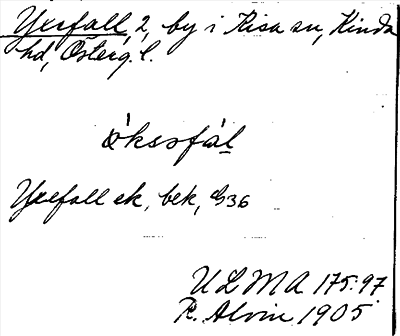 Yxefall, 2, by i Kisa sn, Kinda
hd, Österg. l.
ò̀kssfà̀l
Yxefall ek, bek, G36
ULMA 175:97
R. Alvin 1905